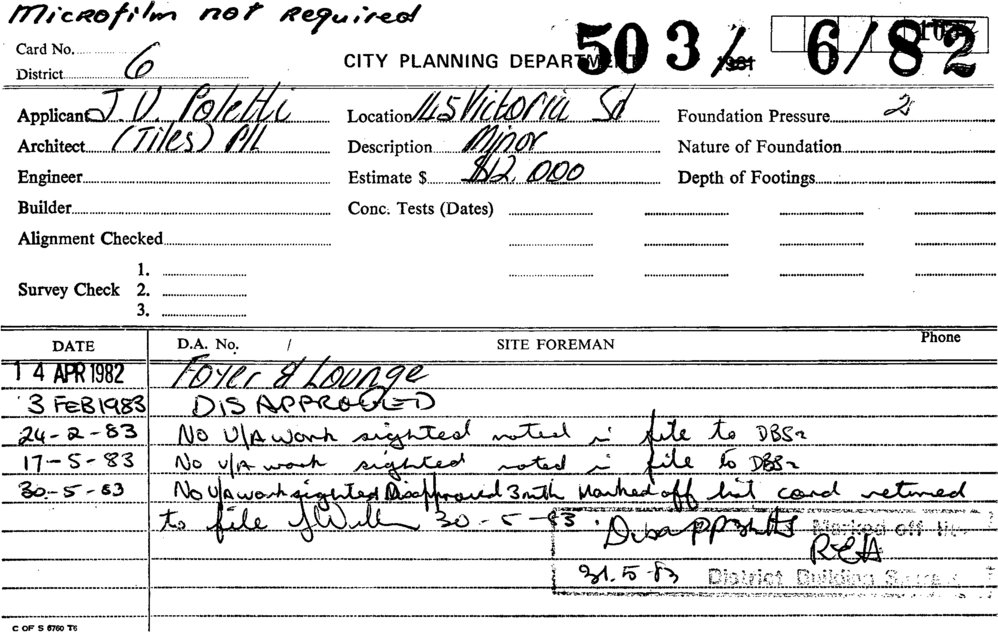 Microfilm not Required
Card No.
District 6
CITY PLANNING DEPARTMENT
503/ 6/82
Applicant J. V. Poletti
Location 145 Victoria St
Foundation Pressure
Architect (Tiles) P/L
Description Minor
Nature of Foundation
Engineer
Estimate $ $12,000
Depth of Footings
Builder
Conc. Tests (Dates)
Alignment Checked
1.
Survey Check 2.
3.
DATE D.A. No. / SITE FOREMAN Phone
14 APR 1982 Foyer & Lounge
3 FEB 1983 DISAPPROVED
24-2-83 No U/A work sighted noted in file to DBS
17-5-83 No u/A work sighted noted in file to DBS
30-5-83 No U/A work sighted Disapproved 3mth Marked off list card returned
to file 30-5-83.
Marked off
31.5.83 District Building
C OF S 6760 T6